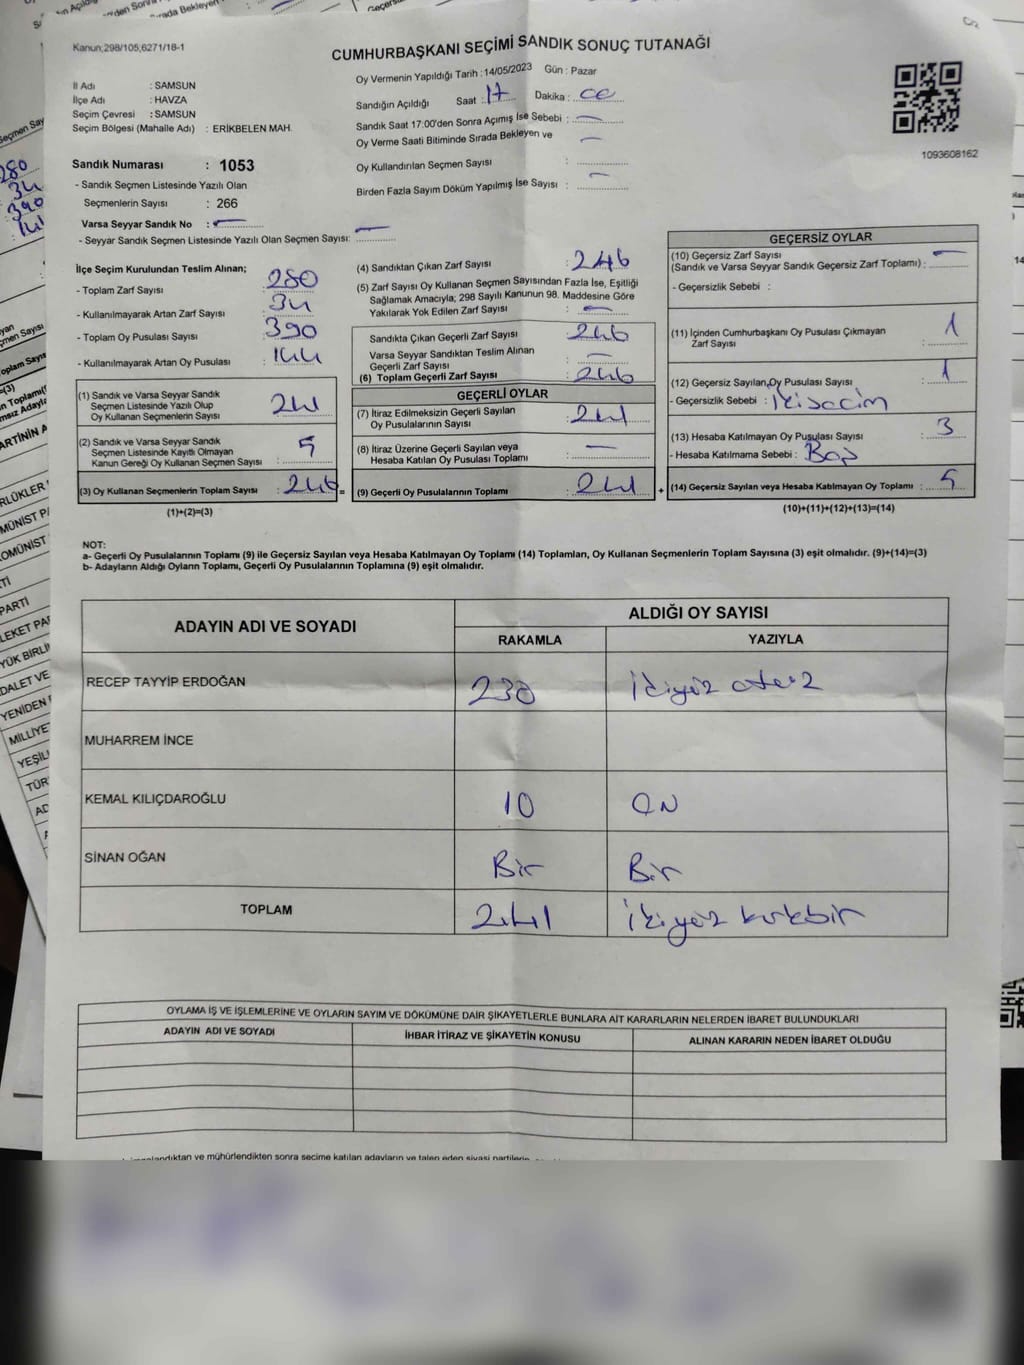 Kanun;298/105,6271/18-1
CUMHURBAŞKANI SEÇİMİ SANDIK SONUÇ TUTANAĞI
İl Adı : SAMSUN
İlçe Adı : HAVZA
Seçim Çevresi : SAMSUN
Seçim Bölgesi (Mahalle Adı) : ERİKBELEN MAH.
Oy Vermenin Yapıldığı Tarih : 14/05/2023 Gün : Pazar
Sandığın Açıldığı Saat : 17 Dakika :
Sandık Saat 17:00'den Sonra Açımış İse Sebebi : —
Oy Verme Saati Bitiminde Sırada Bekleyen ve —
Oy Kullandırılan Seçmen Sayısı :
Birden Fazla Sayım Döküm Yapılmış İse Sayısı : —
1093608162
Sandık Numarası : 1053
- Sandık Seçmen Listesinde Yazılı Olan
Seçmenlerin Sayısı : 266
Varsa Seyyar Sandık No : —
- Seyyar Sandık Seçmen Listesinde Yazılı Olan Seçmen Sayısı: —
İlçe Seçim Kurulundan Teslim Alınan;
- Toplam Zarf Sayısı : 280
- Kullanılmayarak Artan Zarf Sayısı : 34
- Toplam Oy Pusulası Sayısı : 390
- Kullanılmayarak Artan Oy Pusulası : 144
(1) Sandık ve Varsa Seyyar Sandık
Seçmen Listesinde Yazılı Olup
Oy Kullanan Seçmenlerin Sayısı : 241
(2) Sandık ve Varsa Seyyar Sandık
Seçmen Listesinde Kayıtlı Olmayan
Kanun Gereği Oy Kullanan Seçmen Sayısı : 5
(3) Oy Kullanan Seçmenlerin Toplam Sayısı : 246 =
(1)+(2)=(3)
(4) Sandıktan Çıkan Zarf Sayısı : 246
(5) Zarf Sayısı Oy Kullanan Seçmen Sayısından Fazla İse, Eşitliği
Sağlamak Amacıyla; 298 Sayılı Kanunun 98. Maddesine Göre
Yakılarak Yok Edilen Zarf Sayısı : —
Sandıkta Çıkan Geçerli Zarf Sayısı : 246
Varsa Seyyar Sandıktan Teslim Alınan
Geçerli Zarf Sayısı : —
(6) Toplam Geçerli Zarf Sayısı : 246
GEÇERLİ OYLAR
(7) İtiraz Edilmeksizin Geçerli Sayılan
Oy Pusulalarının Sayısı : 241
(8) İtiraz Üzerine Geçerli Sayılan veya
Hesaba Katılan Oy Pusulası Toplamı : —
(9) Geçerli Oy Pusulalarının Toplamı : 241 +
GEÇERSİZ OYLAR
(10) Geçersiz Zarf Sayısı
(Sandık ve Varsa Seyyar Sandık Geçersiz Zarf Toplamı) : —
- Geçersizlik Sebebi :
(11) İçinden Cumhurbaşkanı Oy Pusulası Çıkmayan
Zarf Sayısı : 1
(12) Geçersiz Sayılan Oy Pusulası Sayısı : 1
- Geçersizlik Sebebi : İki seçim
(13) Hesaba Katılmayan Oy Pusulası Sayısı : 3
- Hesaba Katılmama Sebebi : Boş
(14) Geçersiz Sayılan veya Hesaba Katılmayan Oy Toplamı : 5
(10)+(11)+(12)+(13)=(14)
NOT:
a- Geçerli Oy Pusulalarının Toplamı (9) ile Geçersiz Sayılan veya Hesaba Katılmayan Oy Toplamı (14) Toplamları, Oy Kullanan Seçmenlerin Toplam Sayısına (3) eşit olmalıdır. (9)+(14)=(3)
b- Adayların Aldığı Oyların Toplamı, Geçerli Oy Pusulalarının Toplamına (9) eşit olmalıdır.
ADAYIN ADI VE SOYADI ALDIĞI OY SAYISI
RAKAMLA YAZIYLA
RECEP TAYYİP ERDOĞAN 230 İkiyüz otuz
MUHARREM İNCE
KEMAL KILIÇDAROĞLU 10 ON
SİNAN OĞAN Bir Bir
TOPLAM 241 İkiyüz kırkbir
OYLAMA İŞ VE İŞLEMLERİNE VE OYLARIN SAYIM VE DÖKÜMÜNE DAİR ŞİKAYETLERLE BUNLARA AİT KARARLARIN NELERDEN İBARET BULUNDUKLARI
ADAYIN ADI VE SOYADI İHBAR İTİRAZ VE ŞİKAYETİN KONUSU ALINAN KARARIN NEDEN İBARET OLDUĞU